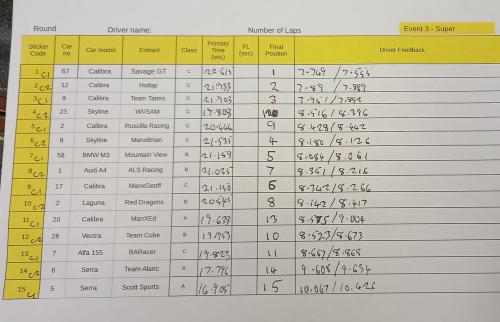 Round Driver name: Number of Laps Event 3 - Super
Sticker Code Car no Car model Entrant Class Primary Time (sec) FL (sec) Final Position Driver Feedback
1 C1 67 Calibra Savage GT C 22.613 1 7.749 / 7.555
2 C2 12 Calibra Hotlap C 21.933 2 7.89 / 7.889
3 C1 9 Calibra Team Taters C 21.903 3
4 C2 23 Skyline WVSAM C 19.808 8.516 / 8.396
5 C1 2 Calibra Ruscillo Racing C 20.444 9 8.428 / 8.442
6 C2 8 Skyline ManxBrian C 21.535 4 8.180 / 8.126
7 C1 58 BMW M3 Mountain View B 21.159 5 8.084 / 8.061
8 C2 1 Audi A4 ALS Racing B 21.035 7 8.351 / 8.216
9 C1 17 Calibra ManxGeoff C 6 8.342 / 8.266
10 C2 2 Laguna Red Dragons B 20.545 8 8.142 / 8.417
11 C1 20 Calibra ManXEd A 19.639 13 8.585 / 9.004
12 C2 28 Vectra Team Cube B 19.953 10 8.523 / 8.673
13 C1 7 Alfa 155 BARacer C 19.823 11 8.667 / 8.868
14 C2 6 Serra Team Alaric A 17.796 14 9.608 / 9.654
15 C1 5 Serra Scott Sports A 16.905 15 10.067 / 10.426